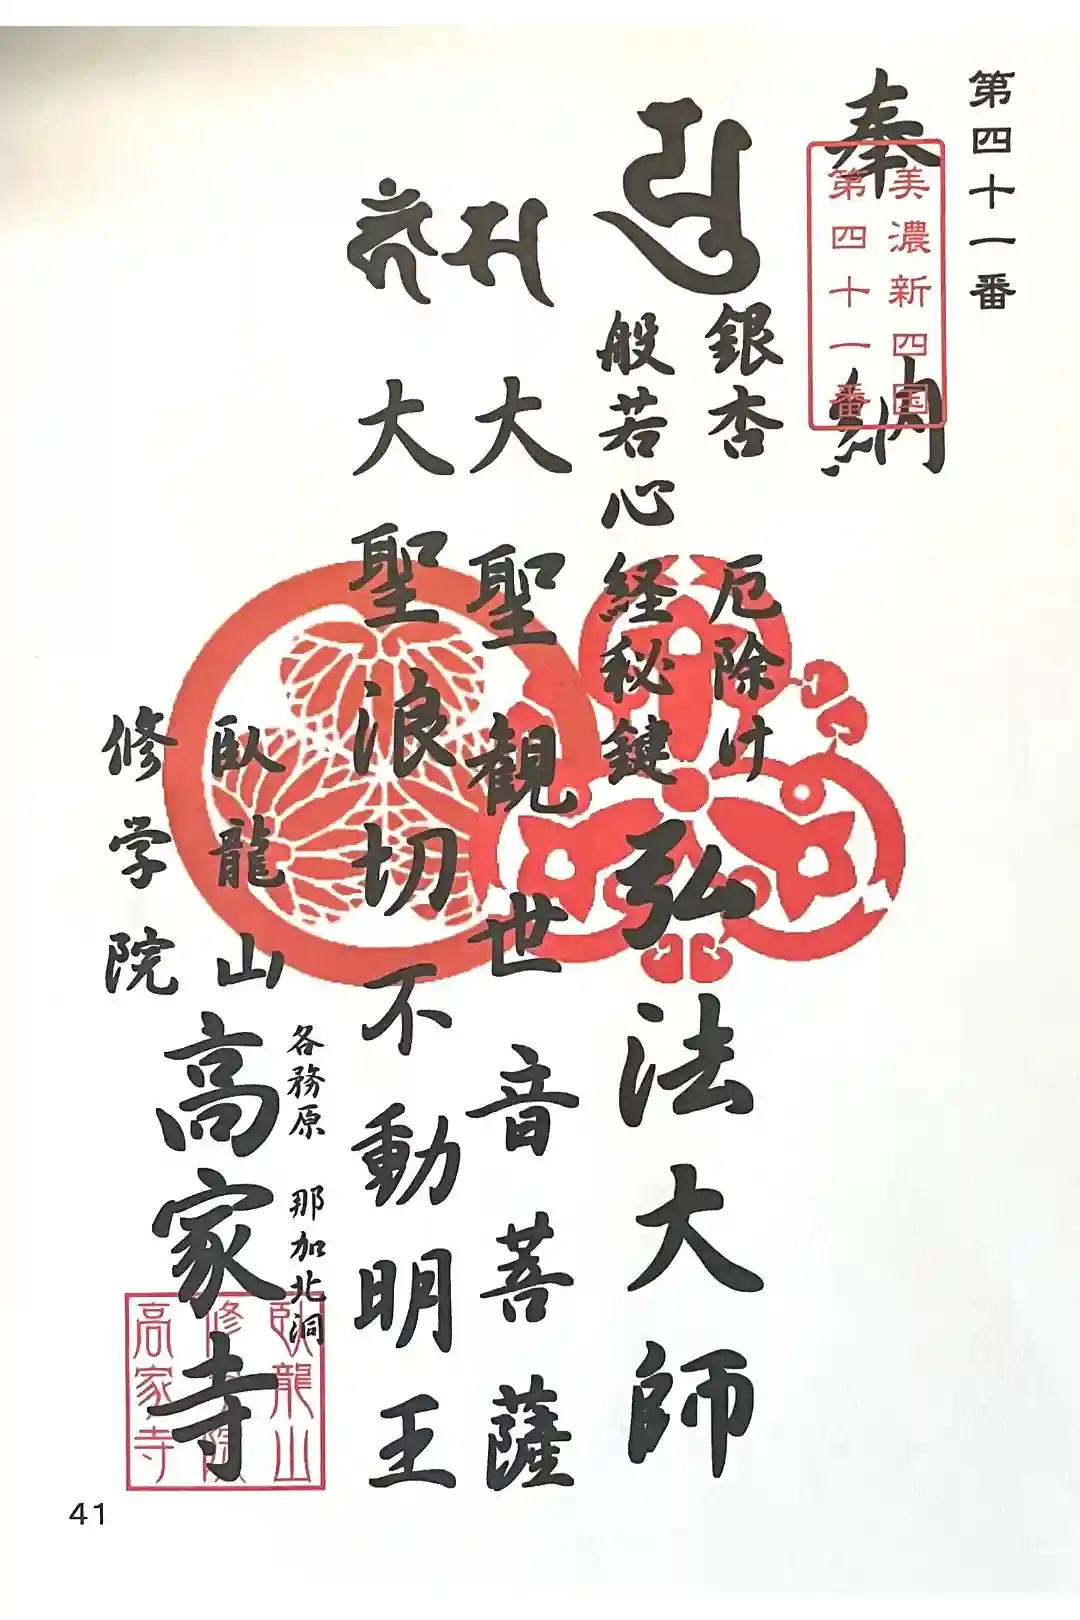 第四十一番
奉納
美濃新四国
第四十一番
銀杏 厄除け
般若心経秘鍵
弘法大師
大聖観世音菩薩
大大聖浪切不動明王
各務原 那加北洞
臥龍山
修学院
高家寺
臥龍山
修学院
高家寺
41